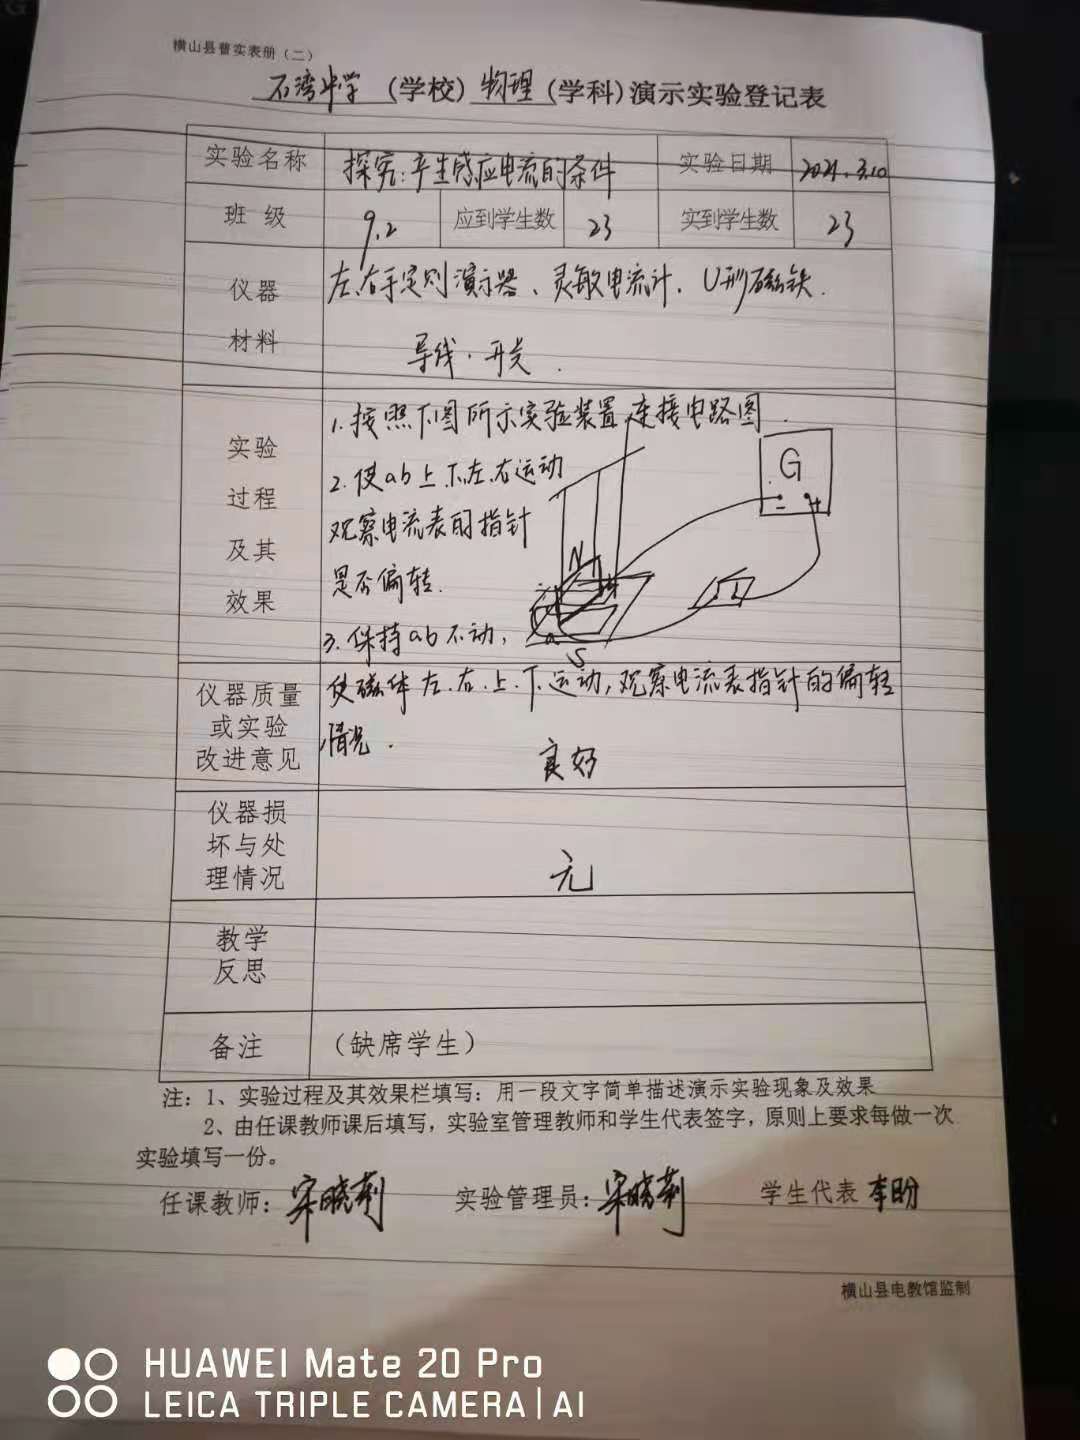 横山县普实表册（二）
石湾中学（学校）物理（学科）演示实验登记表
实验名称 探究：产生感应电流的条件 实验日期 2021.3.10
班 级 9.2 应到学生数 23 实到学生数 23
仪器 左、右手定则演示器、灵敏电流计、U形磁铁.
材料 导线、开关.
1.按照下图所示实验装置连接电路图.
实验
2.使ab上、下、左、右运动
G
- +
过程
观察电流表的指针
及其
是否偏转.
N
效果
3.保持ab不动,
a
S
仪器质量 使磁体左.右.上.下.运动,观察电流表指针的偏转
或实验 情况.
改进意见 良好
仪器损
坏与处
理情况 无
教学
反思
备注 （缺席学生）
注：1、实验过程及其效果栏填写：用一段文字简单描述演示实验现象及效果
2、由任课教师课后填写，实验室管理教师和学生代表签字，原则上要求每做一次
实验填写一份。
任课教师：宋晓莉 实验管理员：宋晓莉 学生代表 李盼
横山县电教馆监制
HUAWEI Mate 20 Pro
LEICA TRIPLE CAMERA | AI